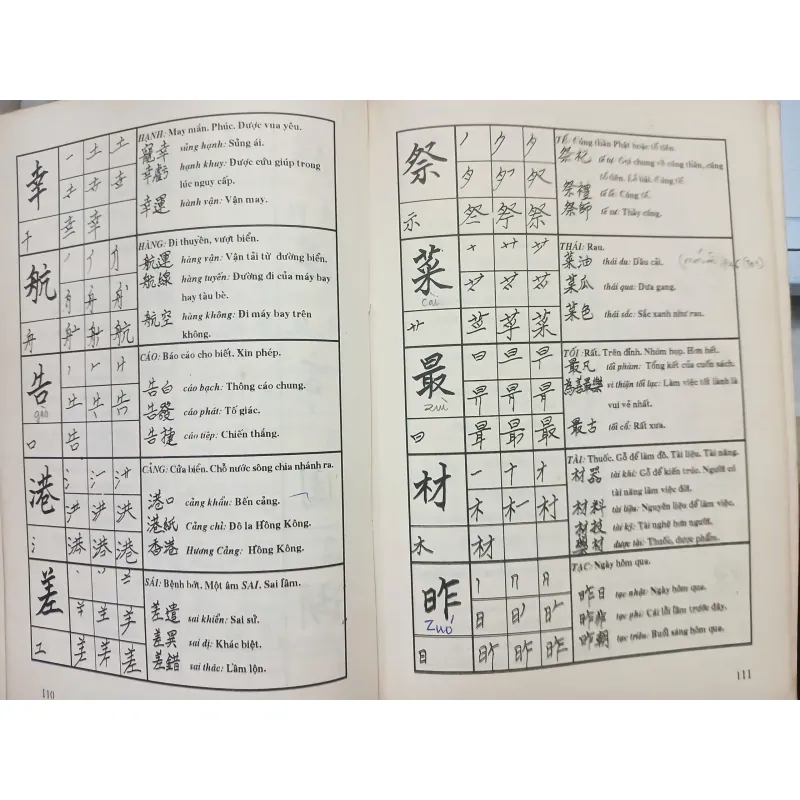 幸
HẠNH: May mắn. Phúc. Được vua yêu.
寵幸 sủng hạnh: Sủng ái.
幸虧 hạnh khuy: Được cứu giúp trong
lúc nguy cấp.
幸運 hành vận: Vận may.
干
航
HÀNG: Đi thuyền, vượt biển.
航運 hàng vận: Vận tải từ đường biển.
航線 hàng tuyến: Đường đi của máy bay
hay tàu bè.
航空 hàng không: Đi máy bay trên
không.
舟
告
gào
CÁO: Báo cáo cho biết. Xin phép.
告白 cáo bạch: Thông cáo chung.
告發 cáo phát: Tố giác.
告捷 cáo tiệp: Chiến thắng.
口
港
CẢNG: Cửa biển. Chỗ nước sông chia nhánh ra.
港口 cảng khẩu: Bến cảng.
港紙 Cảng chỉ: Đô la Hồng Kông.
香港 Hương Cảng: Hồng Kông.
氵
差
SÁI: Bệnh bớt. Một âm SAI. Sai lầm.
差遣 sai khiển: Sai sử.
差異 sai dị: Khác biệt.
差錯 sai thác: Lầm lộn.
工
110
祭
TẾ: Cúng thần Phật hoặc tổ tiên.
祭祀 tế tự: Gọi chung về cúng thần, cúng
tổ tiên. Lễ bái. Cúng tế.
祭禮 tế lễ: Cúng tế.
祭師 tế sư: Thầy cúng.
示
菜
cài
THÁI: Rau.
菜油 thái du: Dầu cải.
菜瓜 thái qua: Dưa gang.
菜色 thái sắc: Sắc xanh như rau.
艹
最
zuì
TỐI: Rất. Trên đỉnh. Nhóm họp. Hơn hết.
最凡 tối phàm: Tổng kết của cuốn sách.
為善最樂 vi thiện tối lạc: Làm việc tốt lành là
vui vẻ nhất.
最古 tối cổ: Rất xưa.
曰
材
TÀI: Thuốc. Gỗ để làm đồ. Tài liệu. Tài năng.
材器 tài khí: Gỗ để kiến trúc. Người có
tài năng làm việc đời.
材料 tài liệu: Nguyên liệu để làm việc.
材技 tài kỹ: Tài nghệ hơn người.
藥材 dược tài: Thuốc, dược phẩm.
木
昨
Zuó
TẠC: Ngày hôm qua.
昨日 tạc nhật: Ngày hôm qua.
昨非 tạc phi: Cái lỗi lầm trước đây.
昨朝 tạc triêu: Buổi sáng hôm qua.
日
111